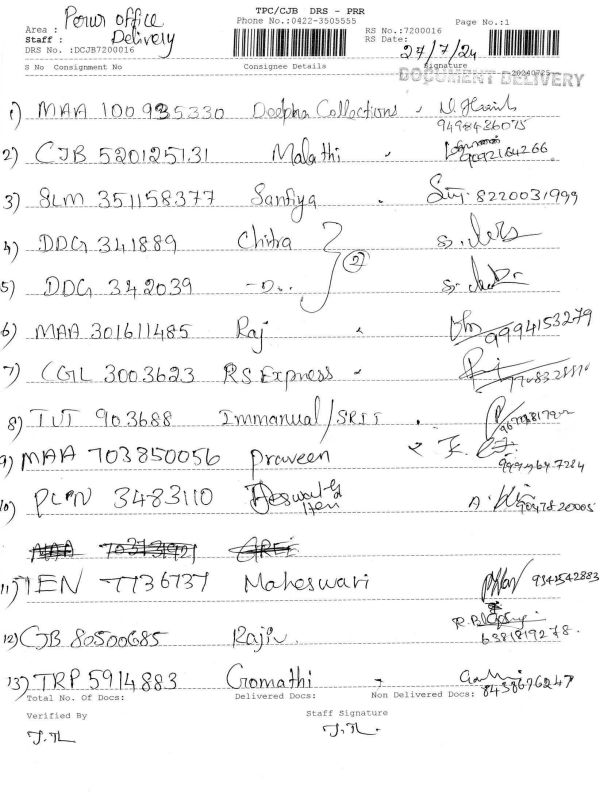 TPC/CJB DRS - PRR
Area : Perur office
Phone No.:0422-3505555
Page No.:1
Staff : Delivery
RS No.:7200016
DRS No. :DCJB7200016
RS Date: 27/7/24
S No Consignment No Consignee Details Signature
20240725
DOCUMENT DELIVERY
1) MAA 100935330 Deepha Collections
9498436075
2) CJB 520125131 Malathi
9092164266
3) SLM 351158377 Santiya 8220031999
4) DDG 341889 Chitra
2
5) DDG 342039 -Do.
6) MAA 301611485 Raj 9994153279
7) CGL 3003623 RS Express
8) TUT 903688 Immanual/SRII
9) MAA 703850056 Praveen
10) PLAN 3483110 9047820005
11) TEN 7736737 Maheswari 9342542883
12) CJB 80500685 Rajiv
6381819278
13) TRP 5914883 Gomathi
8438676247
Total No. Of Docs: Delivered Docs: Non Delivered Docs:
Verified By Staff Signature